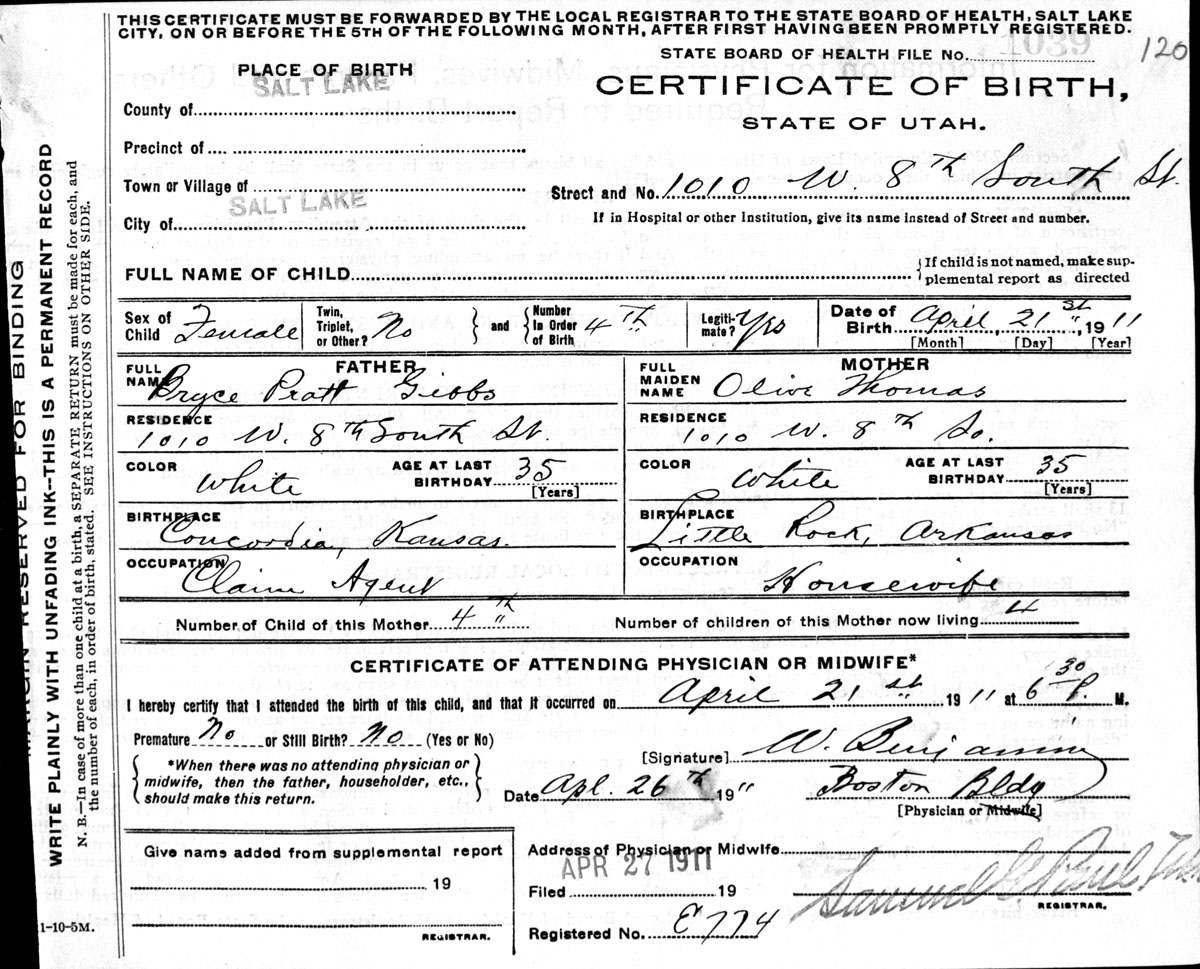 THIS CERTIFICATE MUST BE FORWARDED BY THE LOCAL REGISTRAR TO THE STATE BOARD OF HEALTH, SALT LAKE
CITY, ON OR BEFORE THE 5TH OF THE FOLLOWING MONTH, AFTER FIRST HAVING BEEN PROMPTLY REGISTERED.
STATE BOARD OF HEALTH FILE No. 120
PLACE OF BIRTH
CERTIFICATE OF BIRTH,
STATE OF UTAH.
SALT LAKE
County of
Precinct of
Town or Village of
Street and No. 1010 W. 8th South St.
SALT LAKE
City of
If in Hospital or other Institution, give its name instead of Street and number.
FULL NAME OF CHILD
{If child is not named, make sup-
plemental report as directed
Sex of Child Female
Twin, Triplet, or Other? No
and {Number In Order of Birth 4th
Legiti- mate? Yes
Date of Birth April, 21st, 1911
[Month] [Day] [Year]
FATHER
FULL NAME Bryce Pratt Gibbs
MOTHER
FULL MAIDEN NAME Olive Thomas
RESIDENCE 1010 W. 8th South St.
RESIDENCE 1010 W. 8th So.
COLOR White
AGE AT LAST BIRTHDAY 35
[Years]
COLOR White
AGE AT LAST BIRTHDAY 35
[Years]
BIRTHPLACE Concordia, Kansas.
BIRTHPLACE Little Rock, Arkansas
OCCUPATION Claim Agent
OCCUPATION Housewife
Number of Child of this Mother 4th
Number of children of this Mother now living 4
CERTIFICATE OF ATTENDING PHYSICIAN OR MIDWIFE*
I hereby certify that I attended the birth of this child, and that it occurred on April 21st 1911 at 6 30 P. M.
Premature No or Still Birth? No (Yes or No)
[Signature] W. Benjamin
{*When there was no attending physician or
midwife, then the father, householder, etc.,
should make this return.}
Date Apl. 26th 19 11
Boston Bldg
[Physician or Midwife]
Give name added from supplemental report
19
REGISTRAR.
Address of Physician or Midwife
APR 27 1911
Filed 19
REGISTRAR.
Registered No. E774
1-10-5M.
MARGIN RESERVED FOR BINDING
WRITE PLAINLY WITH UNFADING INK--THIS IS A PERMANENT RECORD
N. B.--In case of more than one child at a birth, a SEPARATE RETURN must be made for each, and
the number of each, in order of birth, stated. SEE INSTRUCTIONS ON OTHER SIDE.